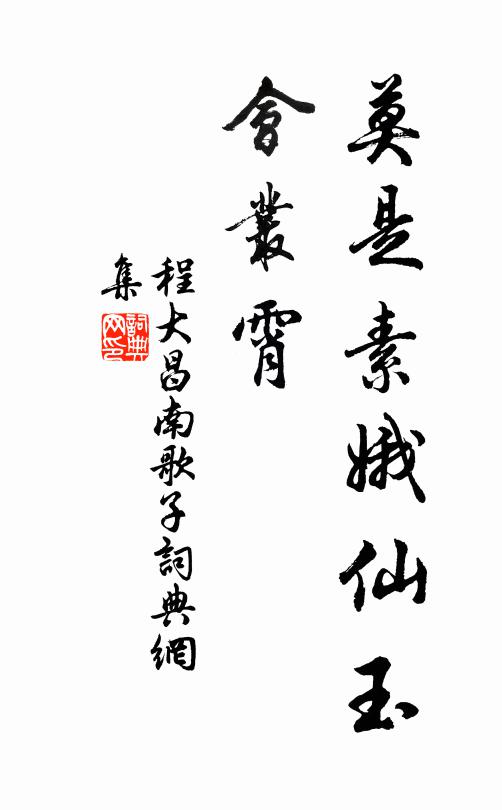 莫是素娥仙玉
會叢霄
程大昌南歌子詞典網
集
詞典
网印